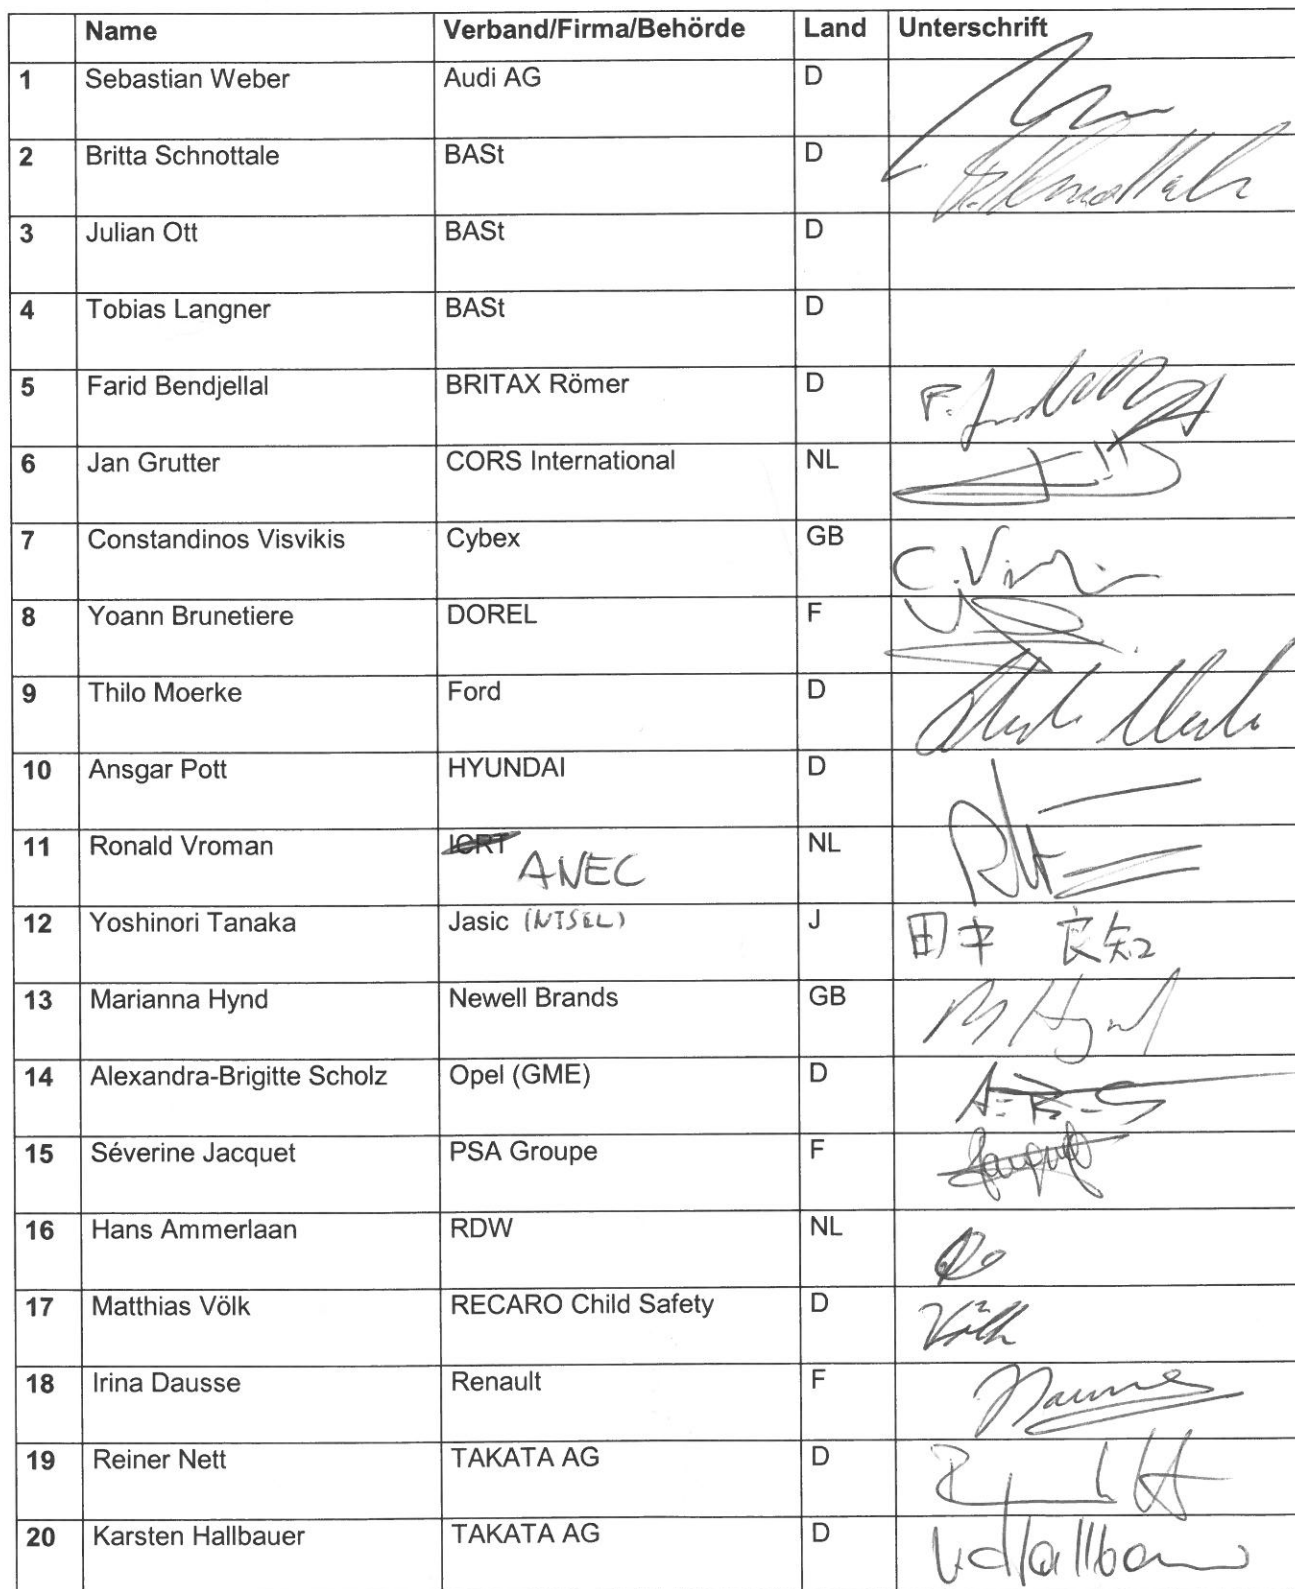 Name Verband/Firma/Behörde Land Unterschrift
1 Sebastian Weber Audi AG D
2 Britta Schnottale BASt D
3 Julian Ott BASt D
4 Tobias Langner BASt D
5 Farid Bendjellal BRITAX Römer D
6 Jan Grutter CORS International NL
7 Constandinos Visvikis Cybex GB
8 Yoann Brunetiere DOREL F
9 Thilo Moerke Ford D
10 Ansgar Pott HYUNDAI D
11 Ronald Vroman ICRT NL
ANEC
12 Yoshinori Tanaka Jasic (NTSEL) J 田中 良知
13 Marianna Hynd Newell Brands GB M Hynd
14 Alexandra-Brigitte Scholz Opel (GME) D A-B-S
15 Séverine Jacquet PSA Groupe F Jacquet
16 Hans Ammerlaan RDW NL
17 Matthias Völk RECARO Child Safety D Völk
18 Irina Dausse Renault F
19 Reiner Nett TAKATA AG D
20 Karsten Hallbauer TAKATA AG D